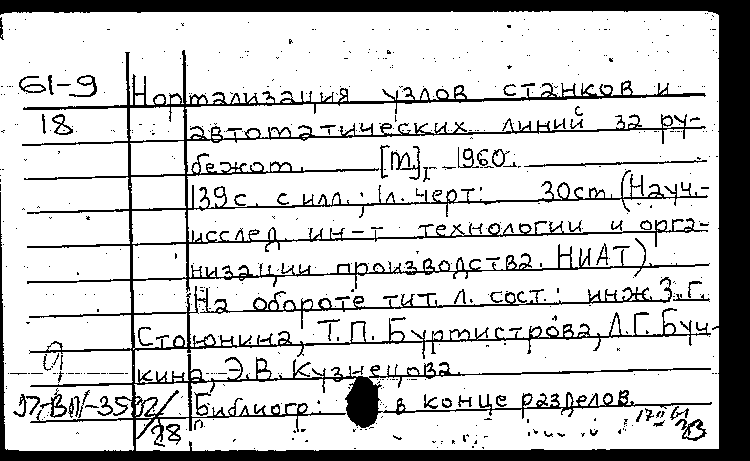 61-9 Нормализация узлов станков и
18 автоматических линий за ру-
бежом. [М.], 1960.
139 с. с илл.; 1л. черт. 30см. (Науч.-
исслед. ин-т технологии и орга-
низации производства. НИАТ).
На обороте тит. л. сост.: инж. З.Г.
Стоюнина, Т.П. Бурмистрова, Л.Г. Буч-
кина, Э.В. Кузнецова.
Библиогр.: в конце разделов.
28